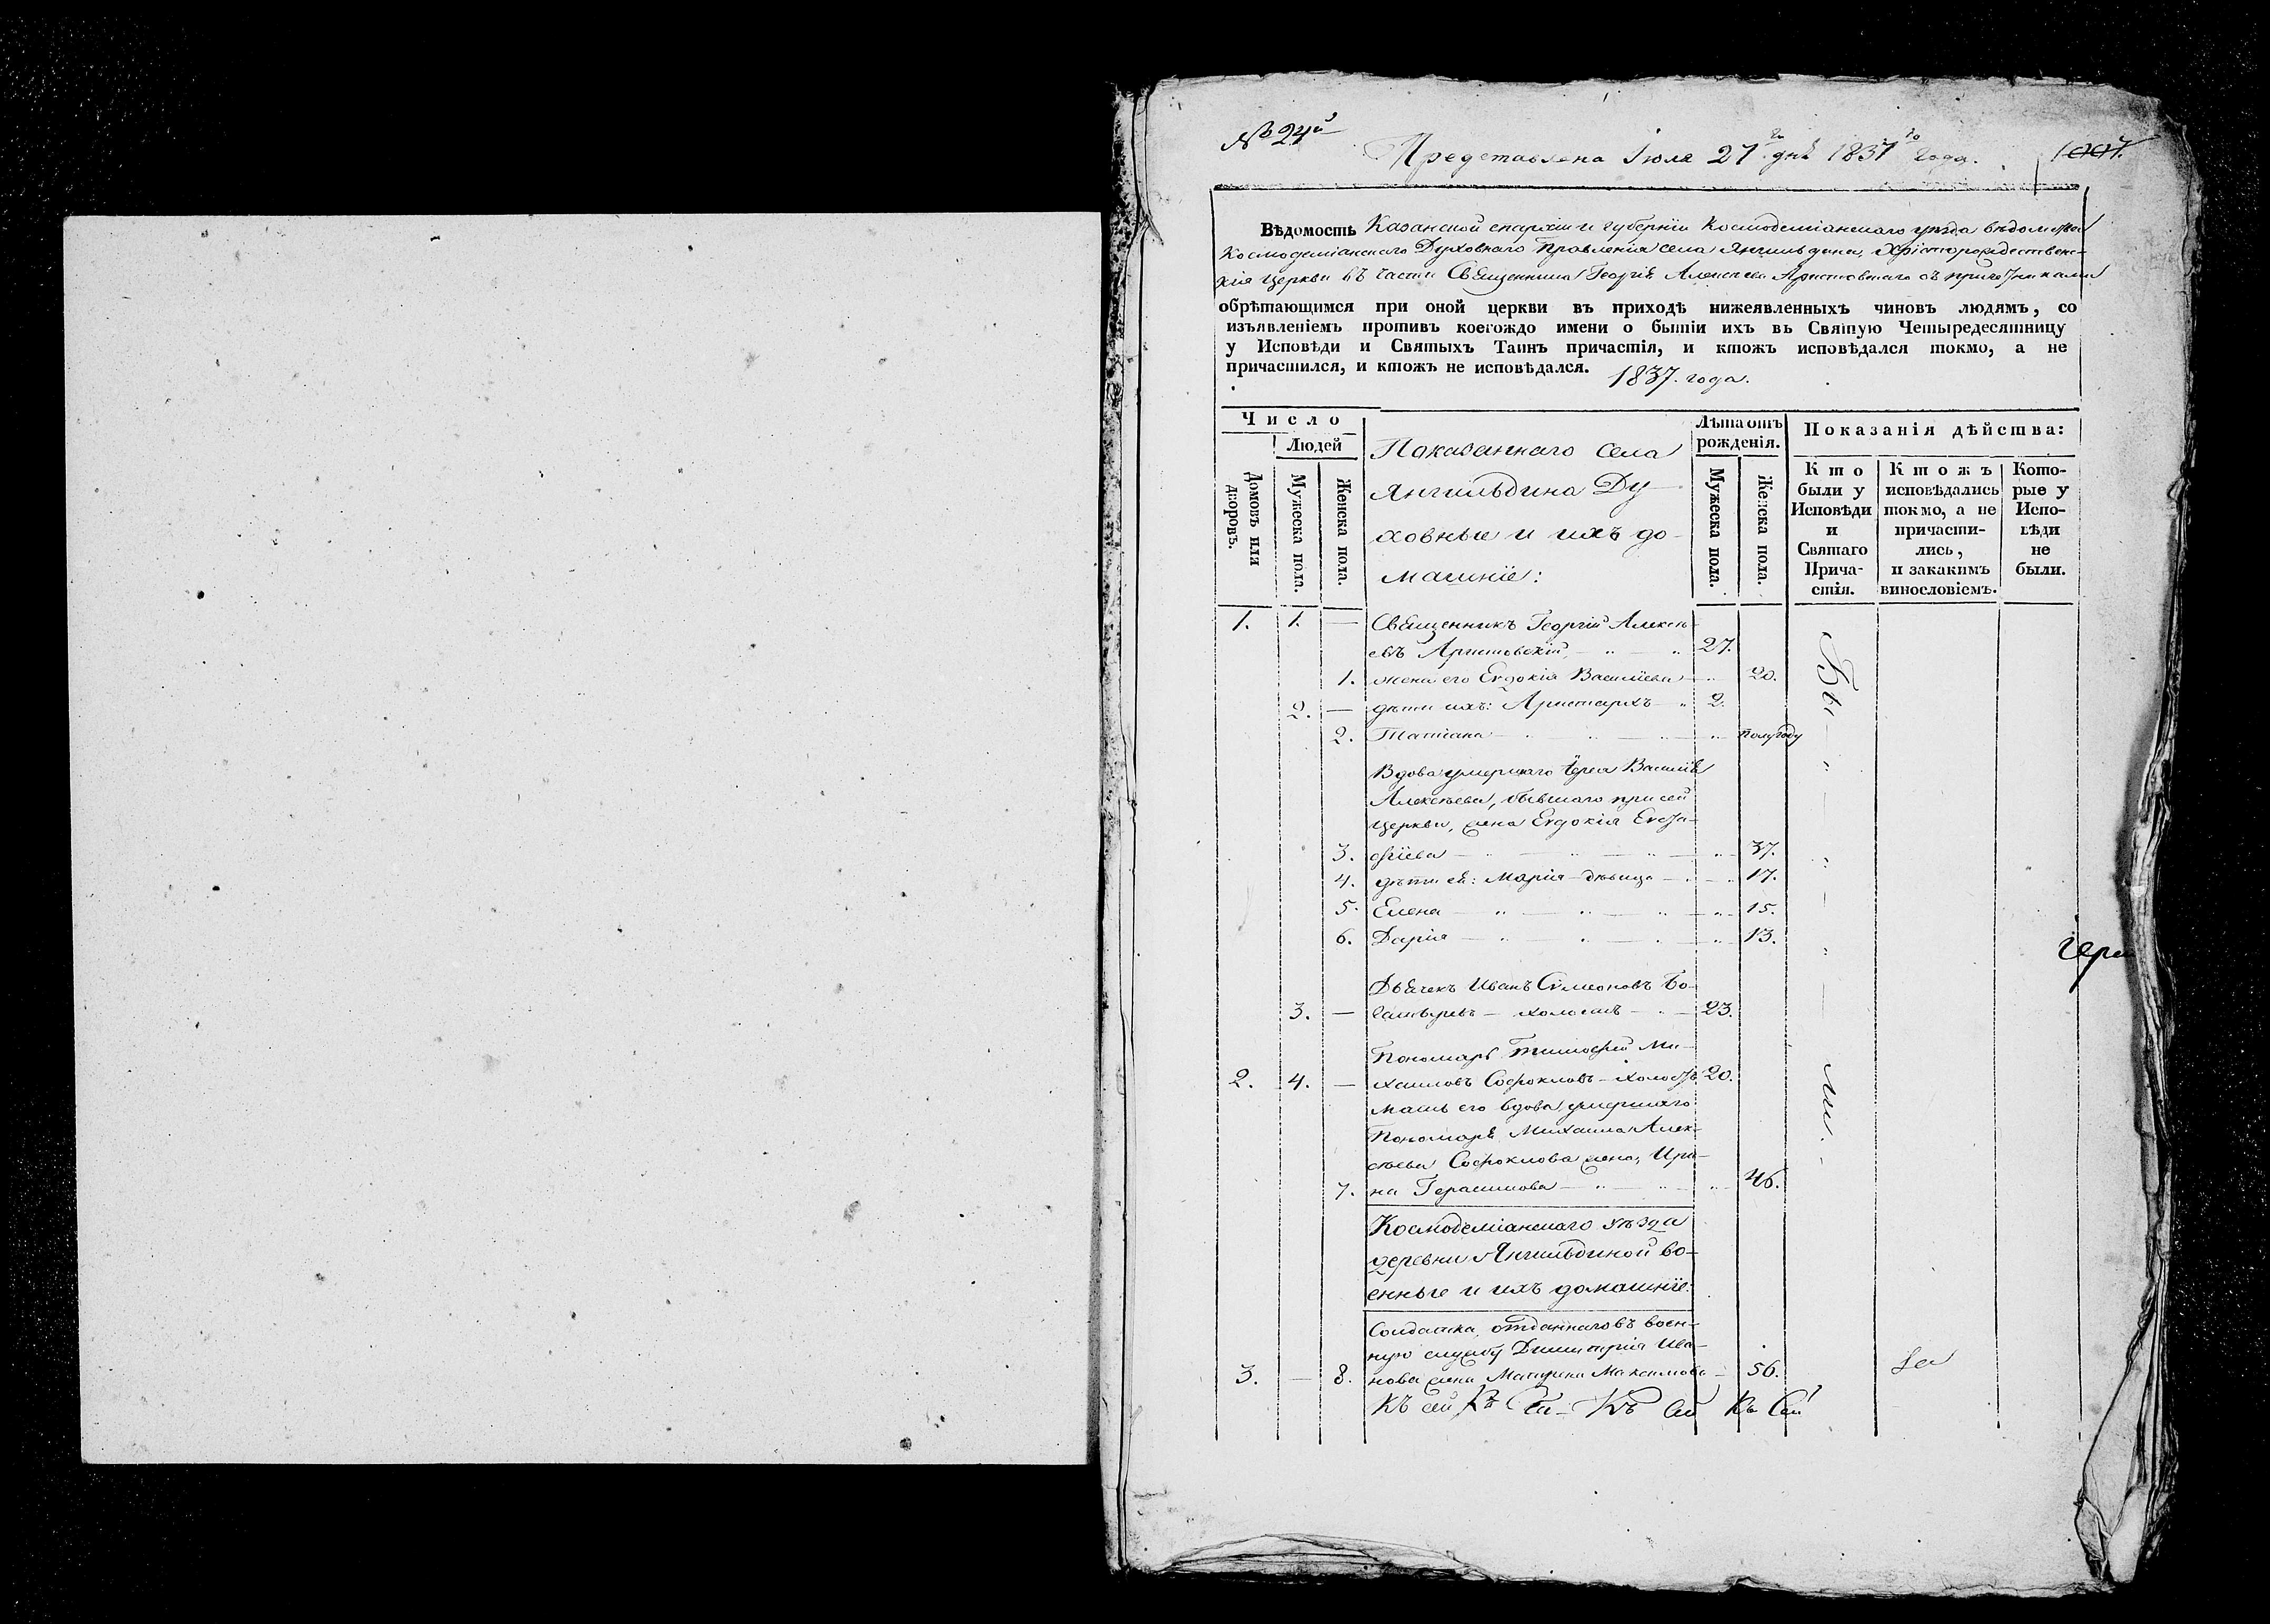 № 24й
Представлена Іюля 27го дня 1837го года.
1007.
Вѣдомость Казанской епархіи и губерніи Космодеміанскаго уѣзда вѣдомства
Космодеміанскаго Духовнаго Правленія села Янгильдина, Христорождествен-
скія церкви въ части Священника Георгія Алексѣева Аристовскаго съ причетниками
обрѣтающимся при оной церкви въ приходѣ нижеявленныхъ чиновъ людямъ, со
изъявленіемъ противъ коегождо имени о бытіи ихъ въ Святую Четыредесятницу
у Исповѣди и Святыхъ Таинъ причастія, и ктожъ исповѣдался токмо, а не
причастился, и ктожъ не исповѣдался.
1837. года.
Число
Людей
Домовъ или дворовъ.
Мужеска пола.
Женска пола.
Показаннаго села
Янгильдина Ду-
ховные и ихъ до-
машніе:
Лѣта отъ рожденія.
Мужеска пола.
Женска пола.
Показанія дѣйства:
Кто были у Исповѣди и Святаго Прича- стія.
Ктожъ исповѣдались токмо, а не причасти- лись, и закакимъ винословіемъ.
Кото- рые у Испо- вѣди не были.
1. 1. — Священникъ Георгій Алексѣ-
евъ Аристовскій 27.
1. жена его Евдокія Васильева 20.
2. — дѣти ихъ: Аристархъ 2.
2. Татіана полугоду
Вдова умершаго Іерея Василія
Алексѣева, бывшаго при сей
церкви, жена Евдокія Евгра-
3. фіева 37.
4. дѣти ея: Марія дѣвица 17.
5. Елена 15.
6. Дарія 13.
Дьячекъ Иванъ Симеоновъ Бо-
3. — гатыревъ — холостъ 23.
Пономарь Тимофей Ми-
2. 4. — хаиловъ Софокловъ — холостъ 20.
мать его вдова, умершаго
Пономаря Михаила Алек-
сѣева Софоклова жена, Ири-
7. на Герасимова 46.
Бы
ли.
Космодеміанскаго уѣзда
деревни Янгильдиной во-
енные и ихъ домашніе:
Солдатка, отданнаго въ воен-
ную службу Димитрія Ива-
3. — 8. нова жена Матрена Максимова 56.
Къ сей Къ Сей Къ сей Къ Сей